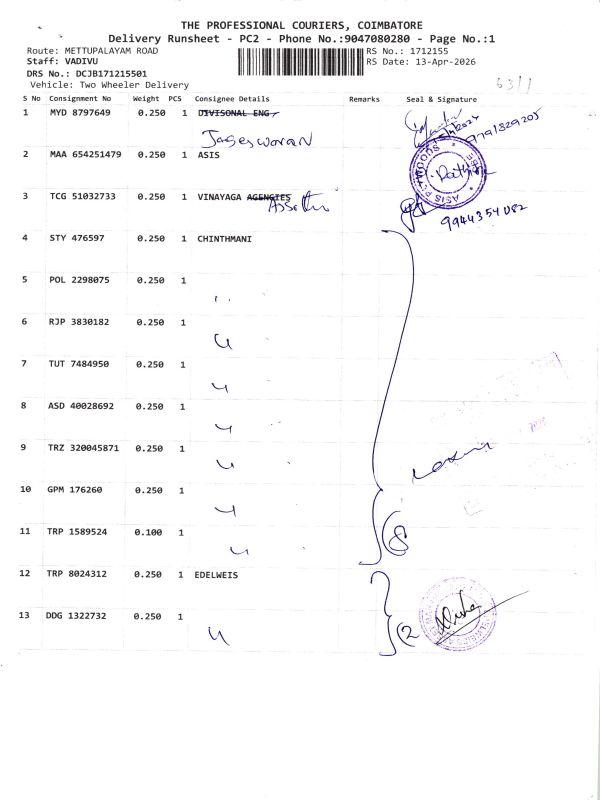 THE PROFESSIONAL COURIERS, COIMBATORE
Delivery Runsheet - PC2 - Phone No.:9047080280 - Page No.:1
Route: METTUPALAYAM ROAD RS No.: 1712155
Staff: VADIVU RS Date: 13-Apr-2026
DRS No.: DCJB171215501
Vehicle: Two Wheeler Delivery
S No Consignment No Weight PCS Consignee Details Remarks Seal & Signature
1 MYD 8797649 0.250 1 DIVISONAL ENG,
Jageswaran
2 MAA 654251479 0.250 1 ASIS
ASIS PLYWOODS
3 TCG 51032733 0.250 1 VINAYAGA AGENCIES
4 STY 476597 0.250 1 CHINTHMANI
5 POL 2298075 0.250 1
6 RJP 3830182 0.250 1
7 TUT 7484950 0.250 1
8 ASD 40028692 0.250 1
9 TRZ 320045871 0.250 1
10 GPM 176260 0.250 1
11 TRP 1589524 0.100 1
8
12 TRP 8024312 0.250 1 EDELWEIS
13 DDG 1322732 0.250 1
2